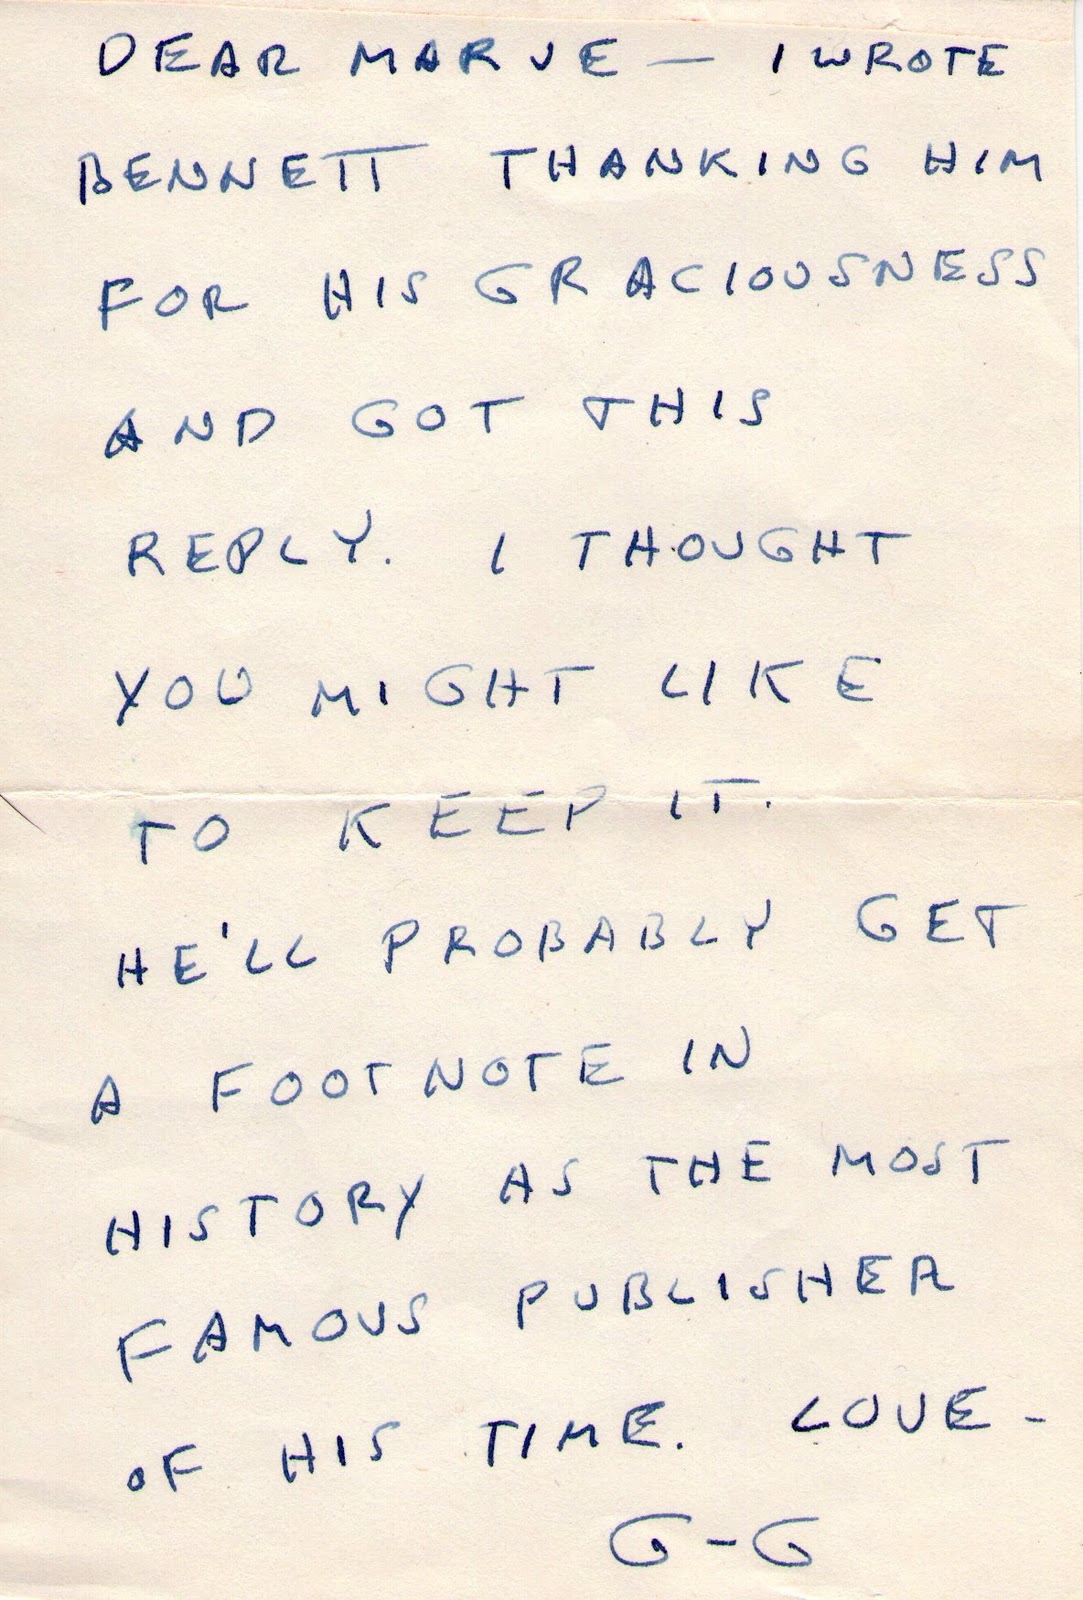 DEAR MARJE — I WROTE
BENNETT THANKING HIM
FOR HIS GRACIOUSNESS
AND GOT THIS
REPLY. I THOUGHT
YOU MIGHT LIKE
TO KEEP IT.
HE'LL PROBABLY GET
A FOOTNOTE IN
HISTORY AS THE MOST
FAMOUS PUBLISHER
OF HIS TIME. LOVE -
G-G